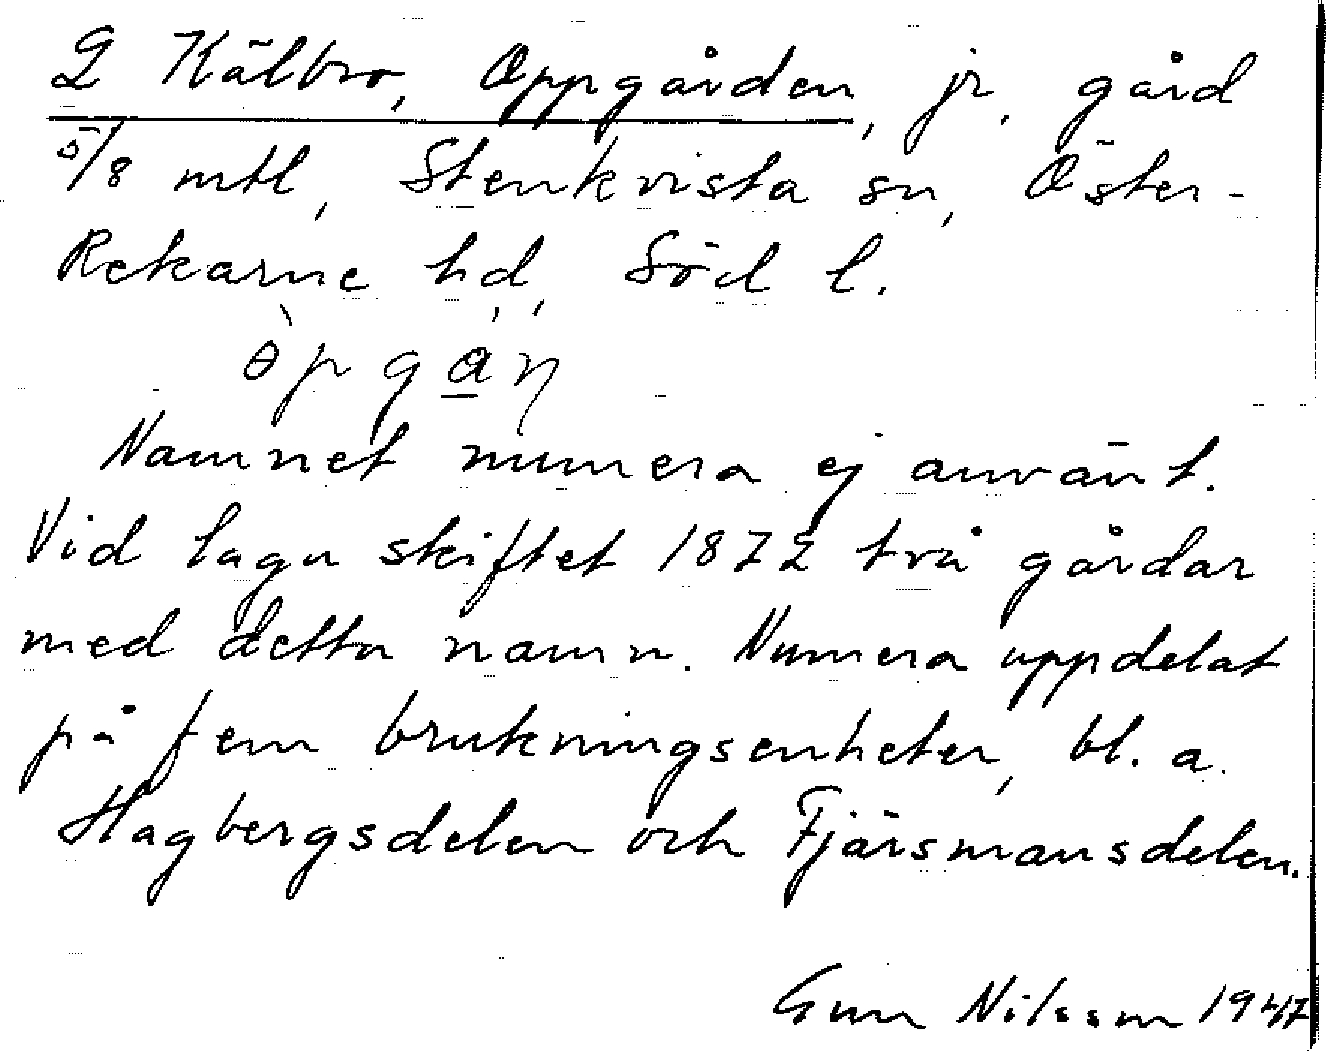 2 Kälbro, Oppgården, jr. gård
5/8 mtl, Stenkvista sn, Öster-
Rekarne hd, Söd l.
Namnet numera ej använt.
Vid laga skiftet 1872 två gårdar
med detta namn. Numera uppdelat
på fem brukningsenheter, bl. a.
Hagbergsdelen och Fjärsmansdelen.
Gun Nilsson 1947